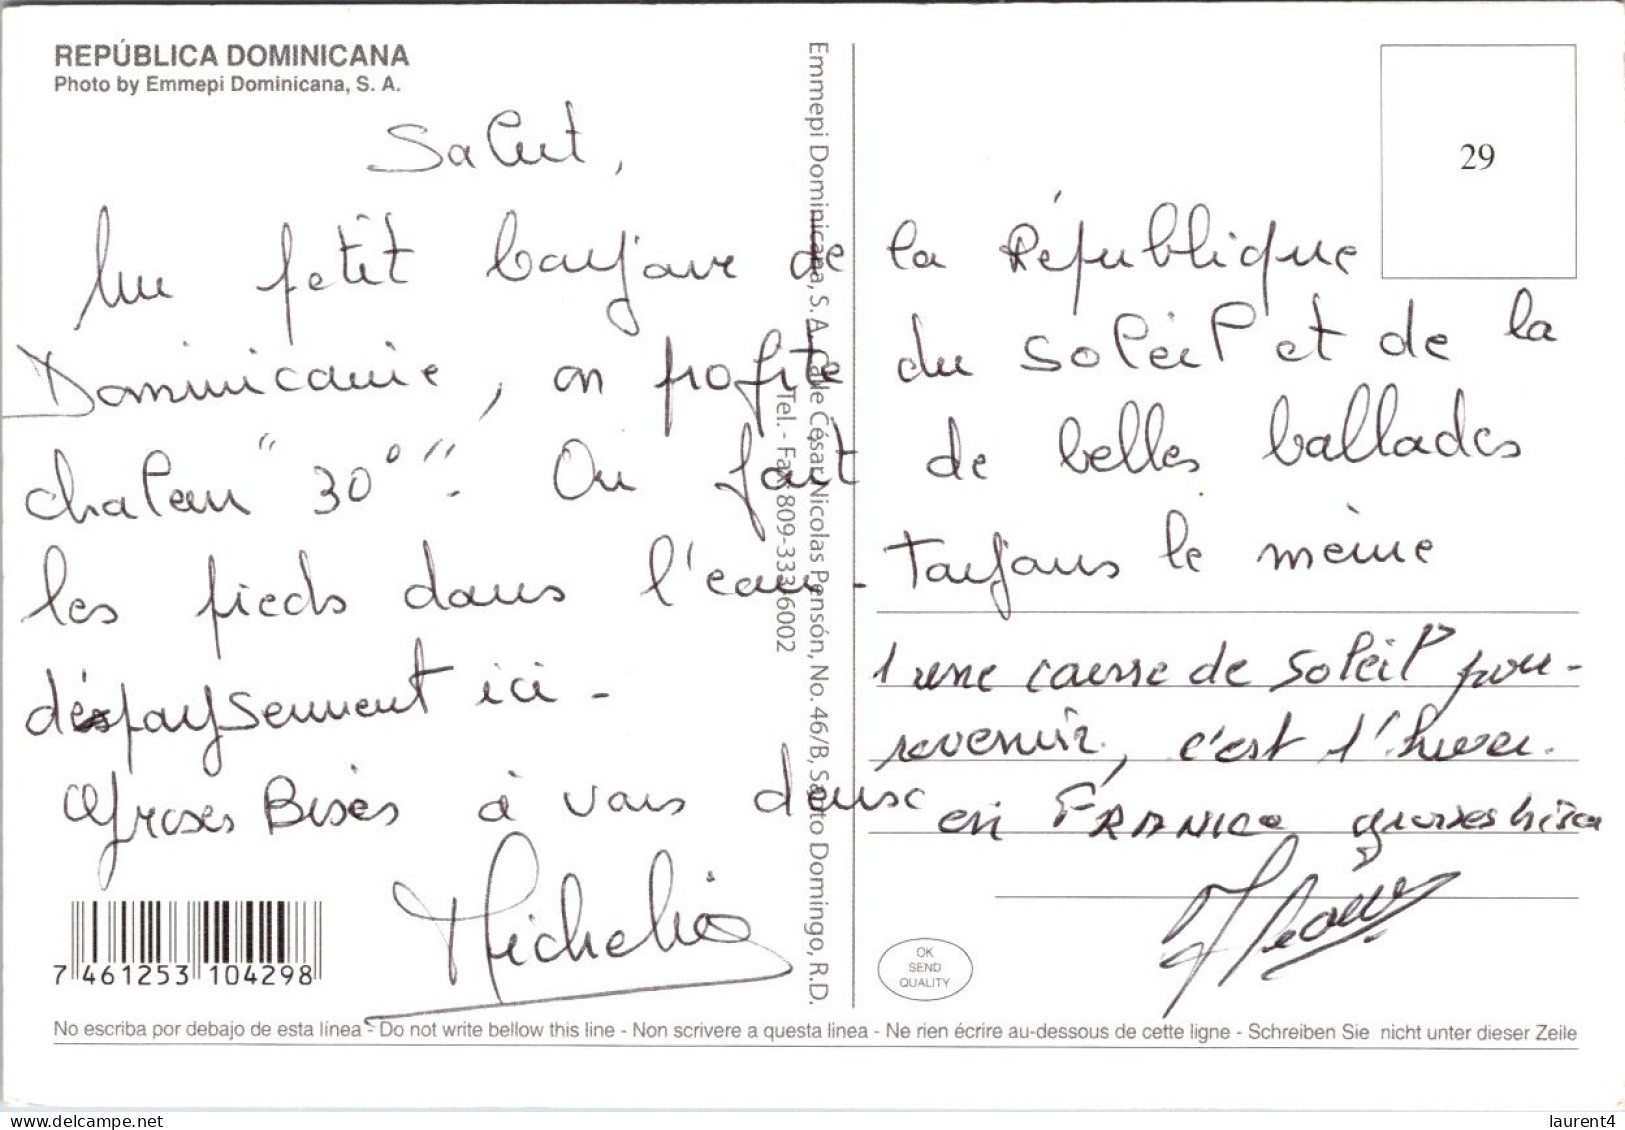 REPÚBLICA DOMINICANA
Photo by Emmepi Dominicana, S. A.
29
Salut,
Un petit bonjour de la République
Dominicaine, on profite du soleil et de la
chaleur "30°". On fait de belles ballades
les pieds dans l'eau - Toujours le même
dépaysement ici -
Groses Bises à vous deux
Michelie
1 une causse de soleil pou-
revenir, c'est l'hiver.
en FRANCe groses bises
Emmepi Dominicana, S. A. Calle César Nicolas Pensón, No. 46/B, Santo Domingo, R.D.
Tel.- Fax 809-333-6002
7 461253 104298
OK
SEND
QUALITY
No escriba por debajo de esta línea - Do not write bellow this line - Non scrivere a questa linea - Ne rien écrire au-dessous de cette ligne - Schreiben Sie nicht unter dieser Zeile
laurent4